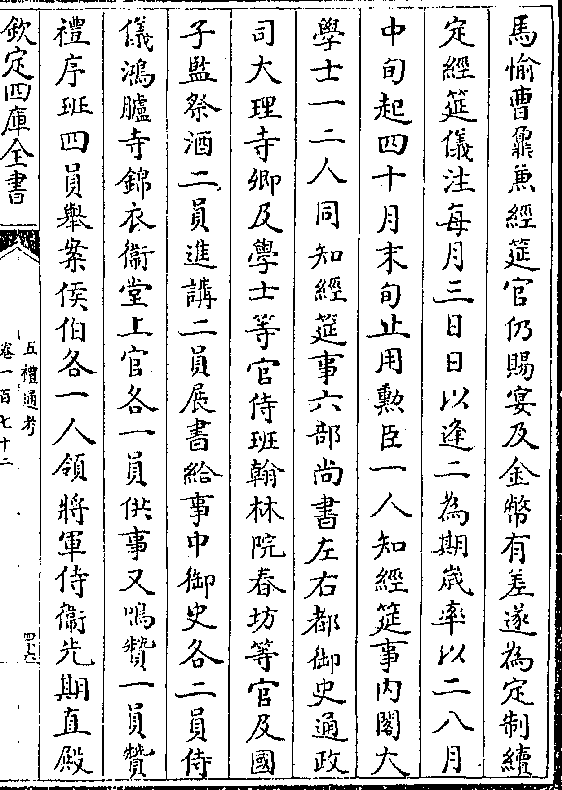 馬愉曹鼐兼經筵官仍賜宴及金幣有差遂為定制續
定經筵儀注每月三日日以逢二為期歲率以二八月
中旬起四十月末旬止用勲臣一人知經筵事内閣大
學士一二人同知經筵事六部尚書左右都御史通政
司大理寺卿及學士等官侍班翰林院春坊等官及國
子監祭酒二員進講二員展書給事中御史各二員侍
儀鴻臚寺錦衣衞堂上官各一員供事又鳴贊一員贊
禮序班四員舉案侯伯各一人領將軍侍衞先期直殿
欽定四庫全書
五禮通考
卷一百七十二